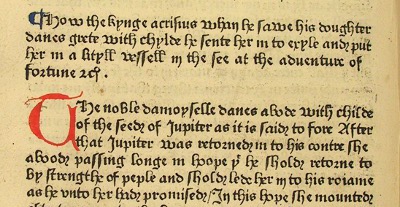 ¶How the kynge acrisius whan he sawe his doughter
danes grete with chylde he sente her in to exyle and put
her in a lityll vessell in the see at the aduenture of
fortune ⁊c̃.
THe noble damoyselle danes abode with childe
of the seed of Jupiter as it is said to fore After
that Jupiter was retorned in to his contre she
abood passing longe in hoope þͭ he shold retorne to
by strengthe of peple and shold lede her in to his roiame
as he vnto her had promised/ In this hope she mounted